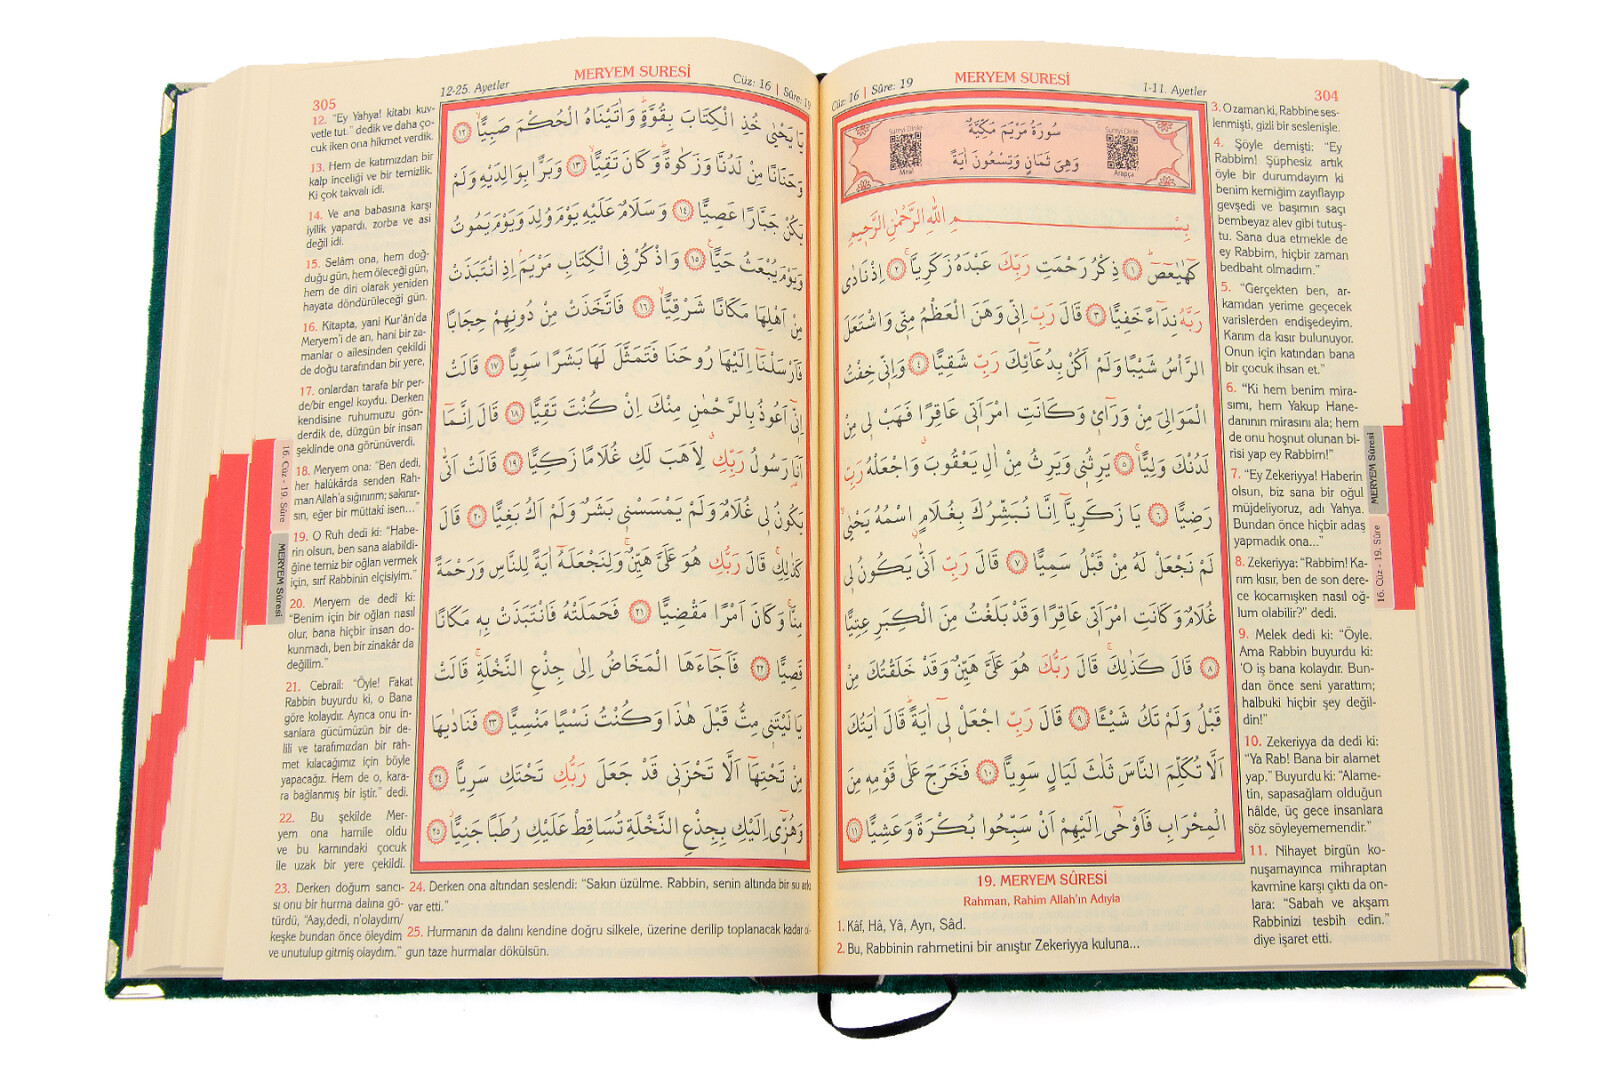 Cüz: 16 | Sûre: 19
MERYEM SURESİ
1-11. Ayetler
304
Sureyi Dinle
Meal
سُورَةُ مَرْيَمَ مَكِّيَّةٌ
وَهِيَ ثَمَانٍ وَتِسْعُونَ اٰيَةً
Sureyi Dinle
Arapça
بِسْمِ اللّٰهِ الرَّحْمٰنِ الرَّحِيمِ
كٓهٰيٰعٓصٓ ﴿١﴾ ذِكْرُ رَحْمَتِ رَبِّكَ عَبْدَهُ زَكَرِيَّا ﴿٢﴾ اِذْ نَادٰى
رَبَّهُ نِدَٓاءً خَفِيًّا ﴿٣﴾ قَالَ رَبِّ اِنّ۪ي وَهَنَ الْعَظْمُ مِنّ۪ي وَاشْتَعَلَ
الرَّأْسُ شَيْبًا وَلَمْ اَكُنْ بِدُعَٓائِكَ رَبِّ شَقِيًّا ﴿٤﴾ وَاِنّ۪ي خِفْتُ
الْمَوَالِيَ مِنْ وَرَٓائ۪ي وَكَانَتِ امْرَاَت۪ي عَاقِرًا فَهَبْ ل۪ي مِنْ
لَدُنْكَ وَلِيًّا ﴿٥﴾ يَرِثُن۪ي وَيَرِثُ مِنْ اٰلِ يَعْقُوبَ وَاجْعَلْهُ رَبِّ
رَضِيًّا ﴿٦﴾ يَا زَكَرِيَّٓا اِنَّا نُبَشِّرُكَ بِغُلَامٍ اسْمُهُ يَحْيٰى
لَمْ نَجْعَلْ لَهُ مِنْ قَبْلُ سَمِيًّا ﴿٧﴾ قَالَ رَبِّ اَنّٰى يَكُونُ ل۪ي
غُلَامٌ وَكَانَتِ امْرَاَت۪ي عَاقِرًا وَقَدْ بَلَغْتُ مِنَ الْكِبَرِ عِتِيًّا
﴿٨﴾ قَالَ كَذٰلِكَ قَالَ رَبُّكَ هُوَ عَلَيَّ هَيِّنٌ وَقَدْ خَلَقْتُكَ مِنْ
قَبْلُ وَلَمْ تَكُ شَيْـًٔا ﴿٩﴾ قَالَ رَبِّ اجْعَلْ ل۪ٓي اٰيَةً قَالَ اٰيَتُكَ
اَلَّا تُكَلِّمَ النَّاسَ ثَلٰثَ لَيَالٍ سَوِيًّا ﴿١٠﴾ فَخَرَجَ عَلٰى قَوْمِه۪ مِنَ
الْمِحْرَابِ فَاَوْحٰٓى اِلَيْهِمْ اَنْ سَبِّحُوا بُكْرَةً وَعَشِيًّا ﴿١١﴾
19. MERYEM SÛRESİ
Rahman, Rahim Allah'ın Adıyla
1. Kâf, Hâ, Yâ, Ayn, Sâd.
2. Bu, Rabbinin rahmetini bir anıştır Zekeriyya kuluna...
3. O zaman ki, Rabbine ses-
lenmişti, gizli bir seslenişle.
4. Şöyle demişti: "Ey
Rabbim! Şüphesiz artık
öyle bir durumdayım ki
benim kemiğim zayıflayıp
gevşedi ve başımın saçı
bembeyaz alev gibi tutuş-
tu. Sana dua etmekle de
ey Rabbim, hiçbir zaman
bedbaht olmadım."
5. "Gerçekten ben, ar-
kamdan yerime geçecek
varislerden endişedeyim.
Karım da kısır bulunuyor.
Onun için katından bana
bir çocuk ihsan et."
6. "Ki hem benim mira-
sımı, hem Yakup Hane-
danının mirasını ala; hem
de onu hoşnut olunan bi-
risi yap ey Rabbim!"
7. "Ey Zekeriyya! Haberin
olsun, biz sana bir oğul
müjdeliyoruz, adı Yahya.
Bundan önce hiçbir adaş
yapmadık ona..."
8. Zekeriyya: "Rabbim! Ka-
rım kısır, ben de son dere-
ce kocamışken nasıl oğ-
lum olabilir?" dedi.
9. Melek dedi ki: "Öyle.
Ama Rabbin buyurdu ki:
'O iş bana kolaydır. Bun-
dan önce seni yarattım;
halbuki hiçbir şey değil-
din!"
10. Zekeriyya da dedi ki:
"Ya Rab! Bana bir alamet
yap." Buyurdu ki: "Alame-
tin, sapasağlam olduğun
hâlde, üç gece insanlara
söz söyleyememendir."
11. Nihayet birgün ko-
nuşamayınca mihraptan
kavmine karşı çıktı da on-
lara: "Sabah ve akşam
Rabbinizi tesbih edin."
diye işaret etti.
MERYEM Sûresi
16. Cüz - 19. Sûre
305
12-25. Ayetler
MERYEM SURESİ
Cüz: 16 | Sûre: 19
يَا يَحْيٰى خُذِ الْكِتَابَ بِقُوَّةٍ وَاٰتَيْنَاهُ الْحُكْمَ صَبِيًّا ﴿١٢﴾
وَحَنَانًا مِنْ لَدُنَّا وَزَكٰوةً وَكَانَ تَقِيًّا ﴿١٣﴾ وَبَرًّا بِوَالِدَيْهِ وَلَمْ
يَكُنْ جَبَّارًا عَصِيًّا ﴿١٤﴾ وَسَلَامٌ عَلَيْهِ يَوْمَ وُلِدَ وَيَوْمَ يَمُوتُ
وَيَوْمَ يُبْعَثُ حَيًّا ﴿١٥﴾ وَاذْكُرْ فِي الْكِتَابِ مَرْيَمَ اِذِ انْتَبَذَتْ
مِنْ اَهْلِهَا مَكَانًا شَرْقِيًّا ﴿١٦﴾ فَاتَّخَذَتْ مِنْ دُونِهِمْ حِجَابًا
فَاَرْسَلْنَٓا اِلَيْهَا رُوحَنَا فَتَمَثَّلَ لَهَا بَشَرًا سَوِيًّا ﴿١٧﴾ قَالَتْ
اِنّ۪ٓي اَعُوذُ بِالرَّحْمٰنِ مِنْكَ اِنْ كُنْتَ تَقِيًّا ﴿١٨﴾ قَالَ اِنَّمَٓا
اَنَا رَسُولُ رَبِّكِ لِاَهَبَ لَكِ غُلَامًا زَكِيًّا ﴿١٩﴾ قَالَتْ اَنّٰى
يَكُونُ ل۪ي غُلَامٌ وَلَمْ يَمْسَسْن۪ي بَشَرٌ وَلَمْ اَكُ بَغِيًّا ﴿٢٠﴾ قَالَ
كَذٰلِكِ قَالَ رَبُّكِ هُوَ عَلَيَّ هَيِّنٌ وَلِنَجْعَلَهُٓ اٰيَةً لِلنَّاسِ وَرَحْمَةً
مِنَّا وَكَانَ اَمْرًا مَقْضِيًّا ﴿٢١﴾ فَحَمَلَتْهُ فَانْتَبَذَتْ بِه۪ مَكَانًا
قَصِيًّا ﴿٢٢﴾ فَاَجَٓاءَهَا الْمَخَاضُ اِلٰى جِذْعِ النَّخْلَةِ قَالَتْ
يَا لَيْتَن۪ي مِتُّ قَبْلَ هٰذَا وَكُنْتُ نَسْيًا مَنْسِيًّا ﴿٢٣﴾ فَنَادٰيهَا
مِنْ تَحْتِهَٓا اَلَّا تَحْزَن۪ي قَدْ جَعَلَ رَبُّكِ تَحْتَكِ سَرِيًّا ﴿٢٤﴾
وَهُزّ۪ٓي اِلَيْكِ بِجِذْعِ النَّخْلَةِ تُسَاقِطْ عَلَيْكِ رُطَبًا جَنِيًّا ﴿٢٥﴾
12. "Ey Yahya! kitabı kuv-
vetle tut." dedik ve daha ço-
cuk iken ona hikmet verdik.
13. Hem de katımızdan bir
kalp inceliği ve bir temizlik.
Ki çok takvalı idi.
14. Ve ana babasına karşı
iyilik yapardı, zorba ve asi
değil idi.
15. Selâm ona, hem doğ-
duğu gün, hem öleceği gün,
hem de diri olarak yeniden
hayata döndürüleceği gün.
16. Kitapta, yani Kur'ân'da
Meryem'i de an, hani bir za-
manlar o ailesinden çekildi
de doğu tarafından bir yere,
17. onlardan tarafa bir per-
de/bir engel koydu. Derken
kendisine ruhumuzu gön-
derdik de, düzgün bir insan
şeklinde ona görünüverdi.
18. Meryem ona: "Ben dedi,
her halükârda senden Rah-
man Allah'a sığınırım; sakınır-
sın, eğer bir müttakî isen..."
19. O Ruh dedi ki: "Habe-
rin olsun, ben sana alabildi-
ğine temiz bir oğlan vermek
için, sırf Rabbinin elçisiyim."
20. Meryem de dedi ki:
"Benim için bir oğlan nasıl
olur, bana hiçbir insan do-
kunmadı, ben bir zinakâr da
değilim."
21. Cebrail: "Öyle! Fakat
Rabbin buyurdu ki, o Bana
göre kolaydır. Ayrıca onu in-
sanlara gücümüzün bir de-
lili ve tarafımızdan bir rah-
met kılacağımız için böyle
yapacağız. Hem de o, kara-
ra bağlanmış bir iştir." dedi.
22. Bu şekilde Mer-
yem ona hamile oldu
ve bu karnındaki çocuk
ile uzak bir yere çekildi.
23. Derken doğum sancı-
sı onu bir hurma dalına gö-
türdü, "Aay,dedi, n'olaydım/
keşke bundan önce öleydim
ve unutulup gitmiş olaydım."
24. Derken ona altından seslendi: "Sakın üzülme. Rabbin, senin altında bir su
var etti."
25. Hurmanın da dalını kendine doğru silkele, üzerine derilip toplanacak kadar
gun taze hurmalar dökülsün.
16. Cüz - 19. Sûre
MERYEM Sûresi